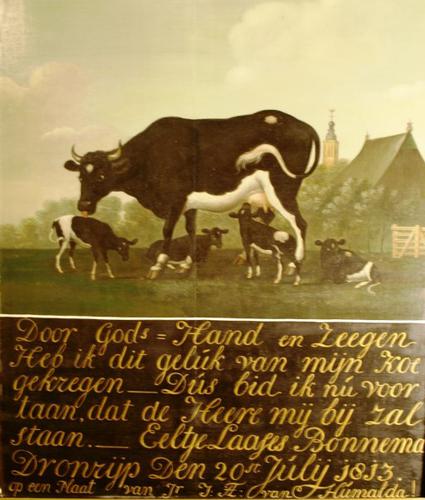 Door Gods = Hand en Zeegen
Heb ik dit gelúk van mijn Koe
gekregen — Dús bid ik nú voor
taan, dat de Heere mij bij zal
staan. — Eeltje Laases Bonnema
Dronrijp Den 20st Júlij 1813
op een Plaat van Jr. J. Æ: van